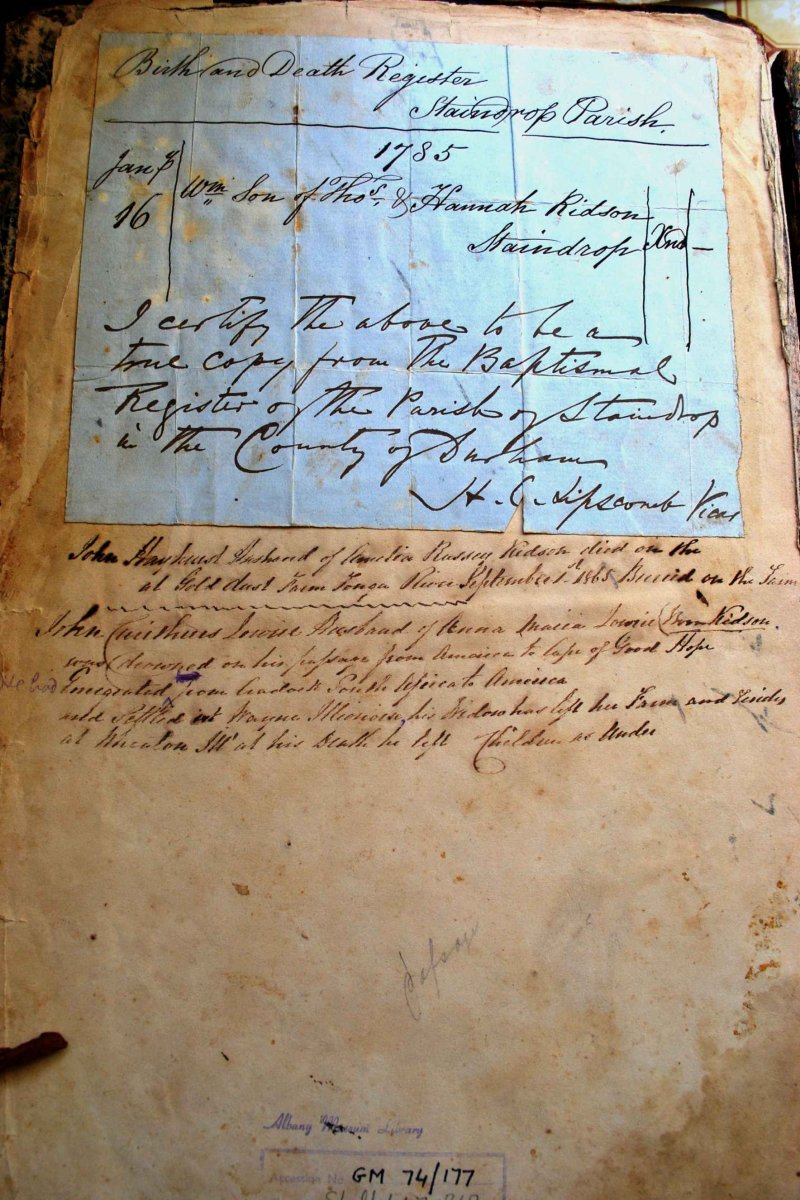 Birth and Death Register
Staindrop Parish.
1785
Jany
16
Wm Son of Thos. & Hannah Kidson
Staindrop
Xnd —
I certify the above to be a
true copy from the Baptismal
Register of the Parish of Staindrop
in the County of Durham
H. C. Lipscomb Vicar
John Hayhurst Husband of Amelia Kidson died on the
at Gold dust Farm River September 1st 1865 Buried on the Farm
John Lowrie Husband of Anna Maria Lowrie (Born Kidson.
was drowned on his passage from America to Cape of Good Hope
He had
Emigrated from Cradock South Africa to America
and Settled in Wayne Illinois, his Widow has left her Farm and resides
at Wheaton Ill' at his Death he left Children as Under
Albany Museum Library
Accession No
GM 74/177